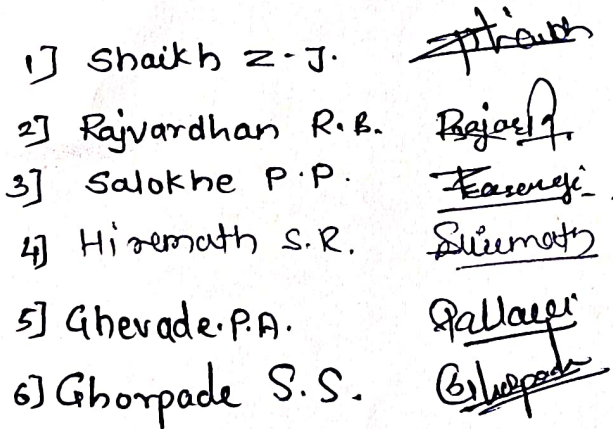 1] Shaikh Z.J.
2] Rajvardhan R.B.
3] Salokhe P.P.
4] Hiremath S.R. Hiremath
5] Ghevade.P.A. Pallavi
6] Ghorpade S.S. Ghorpade